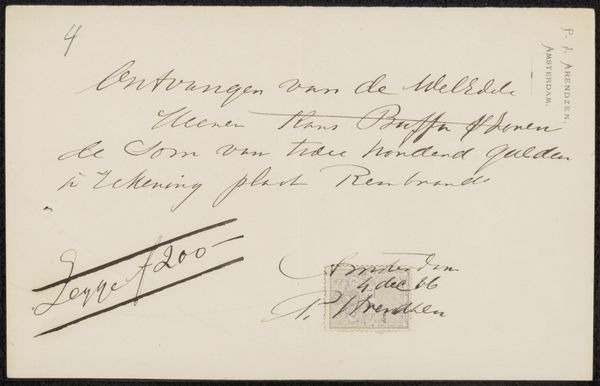 4
P. J. ARENDZEN,
AMSTERDAM.
Ontvangen van de WelEdele
Heeren Frans Buffa & Zonen
de Som van twee honderd gulden
à rekening plaat Rembrandt
Zegge f 200-
Amsterdam
4 dec 86
P. J. Arendzen